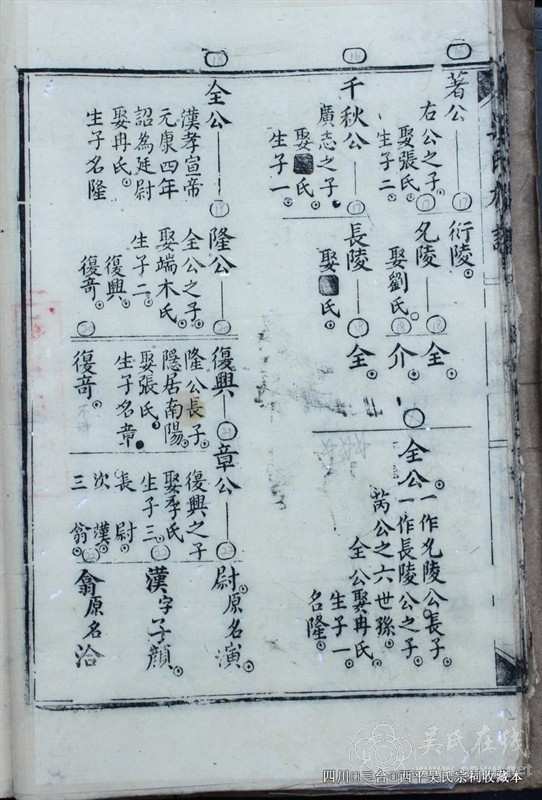 吳氏
著公
右公之子
娶張氏
生子二
衍陵
允陵
娶劉氏
全
介
千秋公
廣志之子
娶
氏
生子一
長陵
娶
氏
全
全公
一作允陵公長子
一作長陵公之子
芮公之六世孫
全公娶冉氏
生子一
名隆
全公
漢孝宣帝
元康四年
詔為廷尉
娶冉氏
生子名隆
隆公
全公之子
娶端木氏
生子二
復興
復竒
復興
隆公長子
隱居南陽
娶張氏
生子名章
復竒
章公
復興之子
娶季氏
生子三
長尉
次漢
三翕
尉原名演
漢字子顏
翕原名洽
吴氏在线
四川□三台□西平吴氏宗祠收藏本